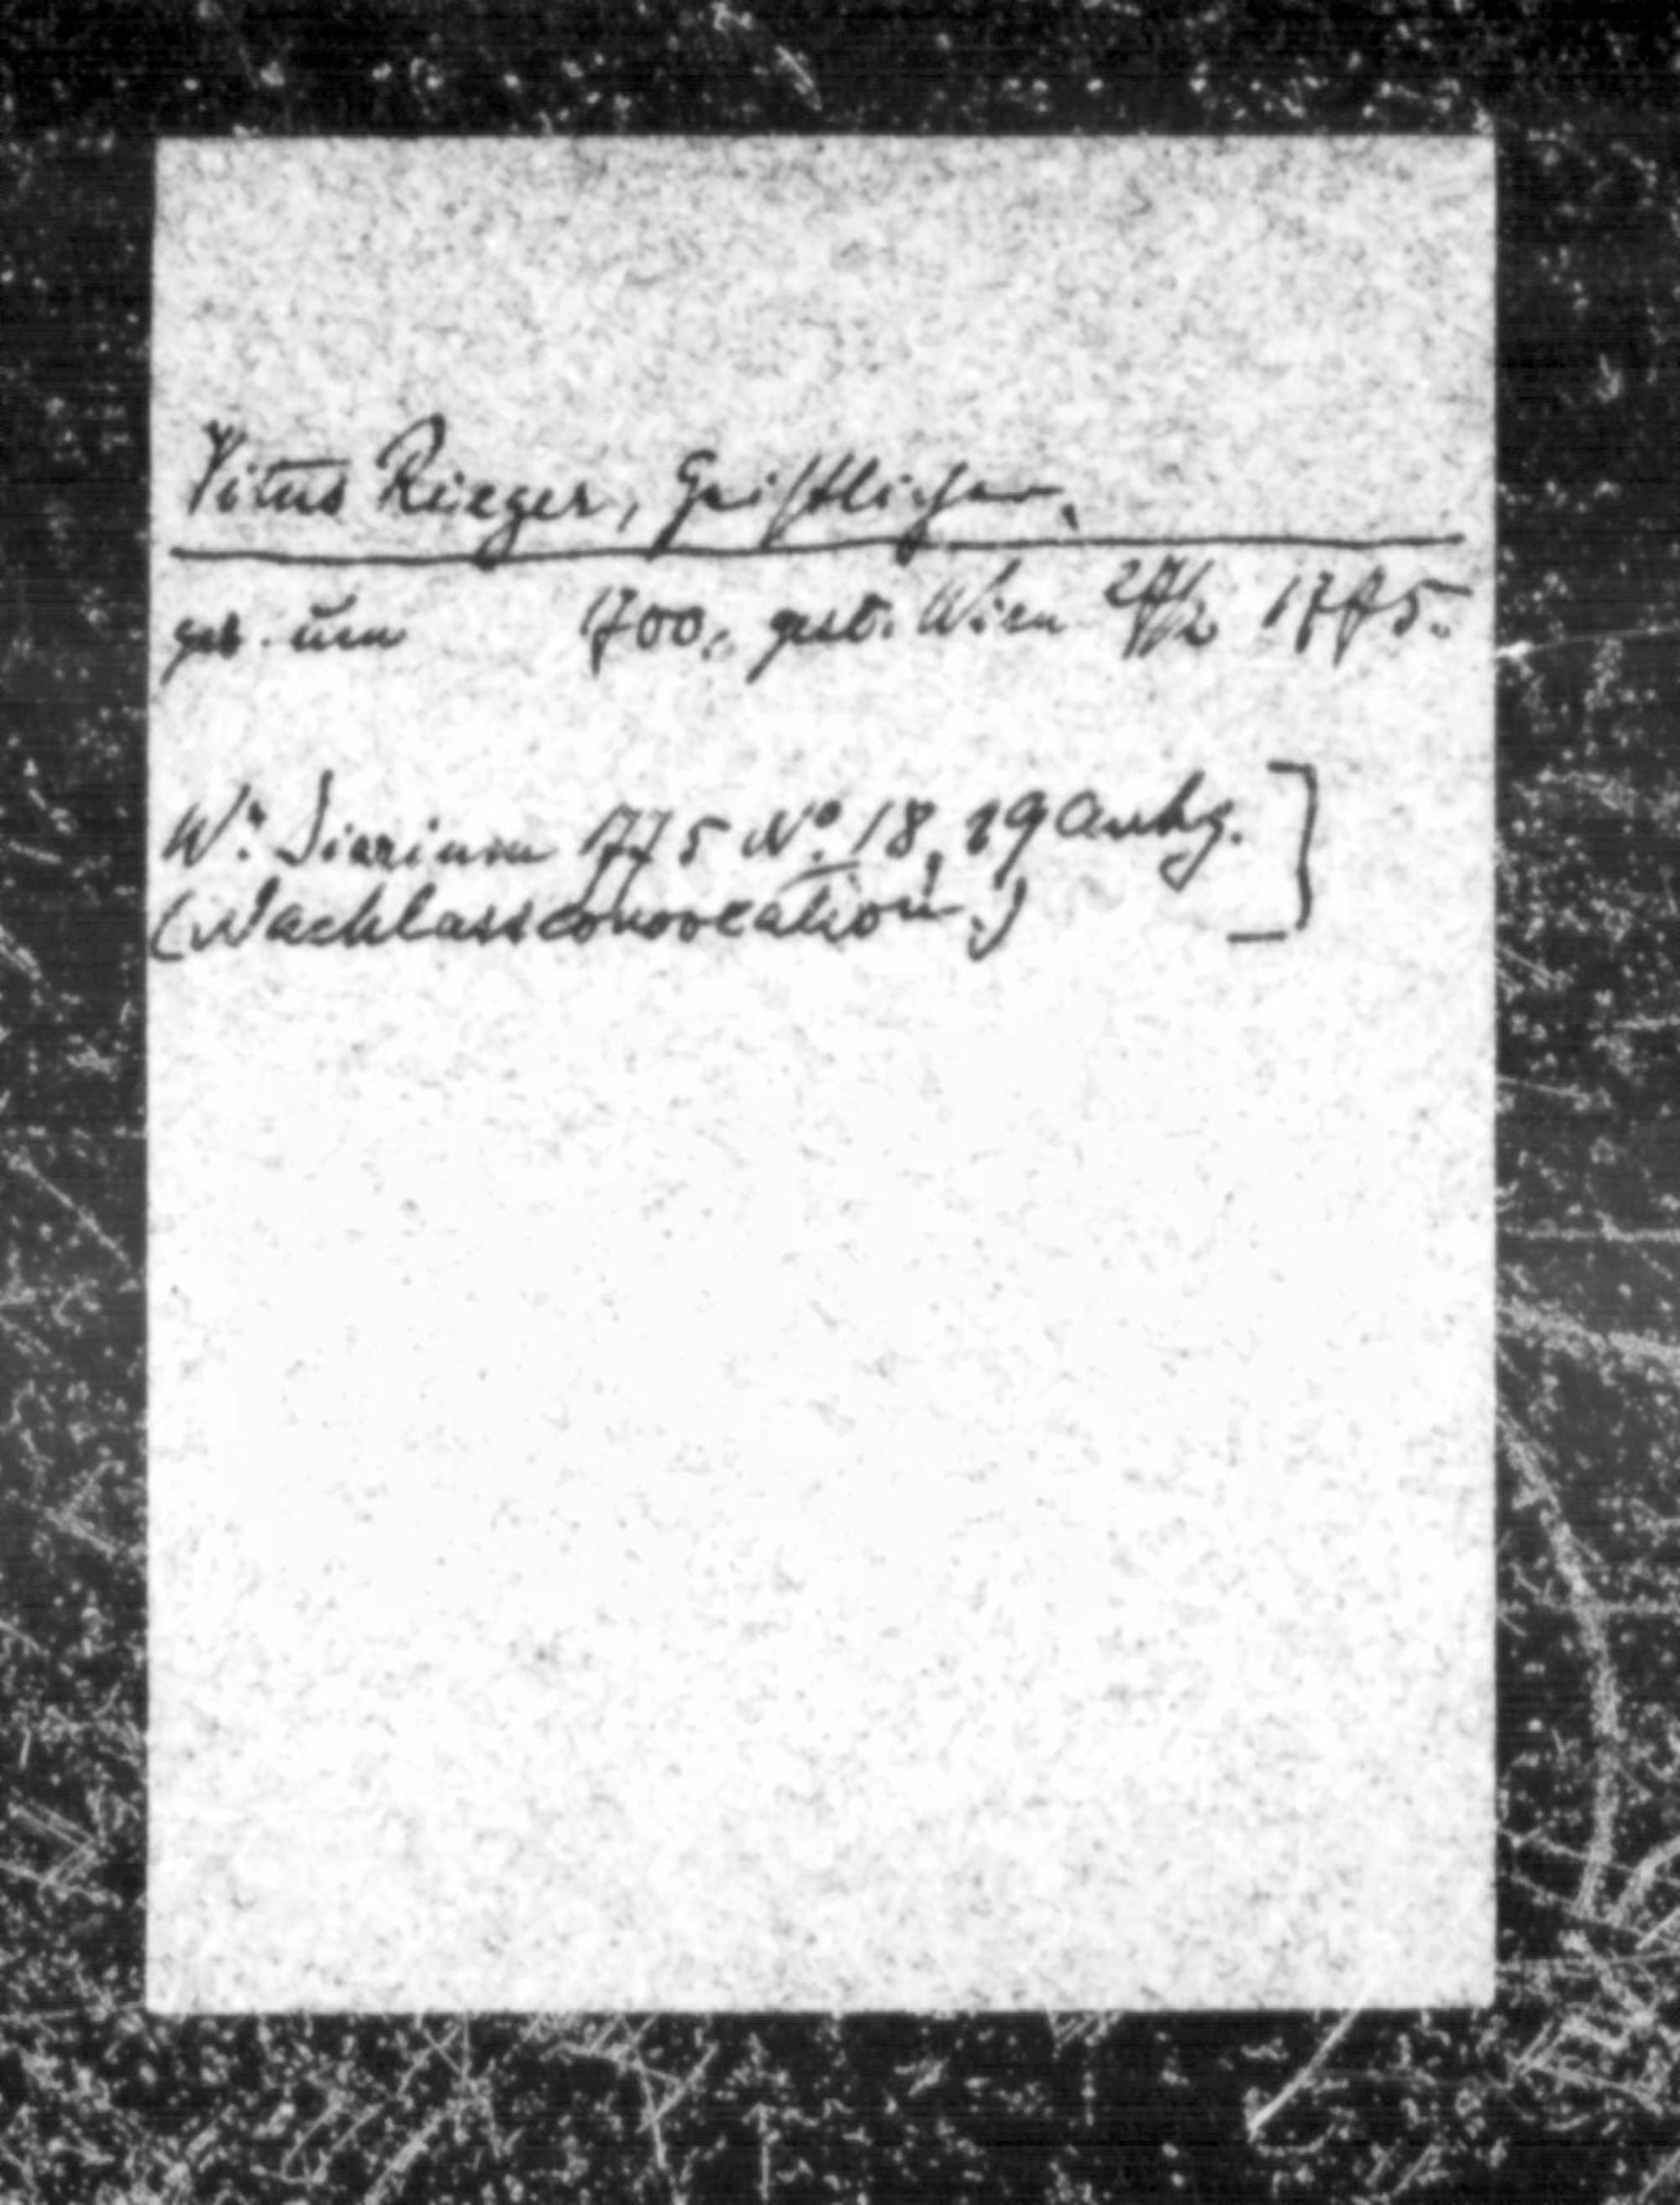 Vitus Rieger, Geistlicher.
geb. um 1700, gest. Wien 1775.
Wr. Diarium 1775 No. 18, 19 Anhg. ]
(Nachlassconvocation.)